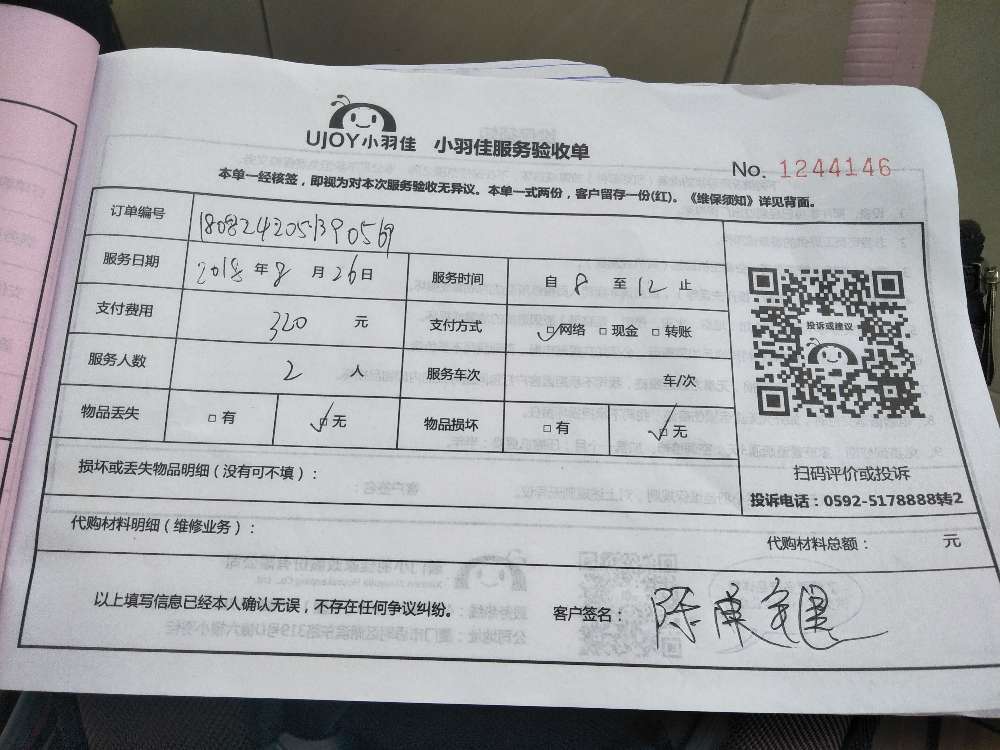 UJOY小羽佳 小羽佳服务验收单
No. 1244146
本单一经核签，即视为对本次服务验收无异议。本单一式两份，客户留存一份(红)。《维保须知》详见背面。
订单编号 180824205139056
服务日期 2018 年 8 月 26 日 服务时间 自 8 至 12 止
支付费用 320 元 支付方式 ☑网络 □现金 □转账
服务人数 2 人 服务车次 车/次
物品丢失 □有 ☑无 物品损坏 □有 ☑无
投诉或建议
扫码评价或投诉
投诉电话：0592-5178888转2
损坏或丢失物品明细（没有可不填）：
代购材料明细（维修业务）：
代购材料总额： 元
以上填写信息已经本人确认无误，不存在任何争议纠纷。 客户签名： 陈